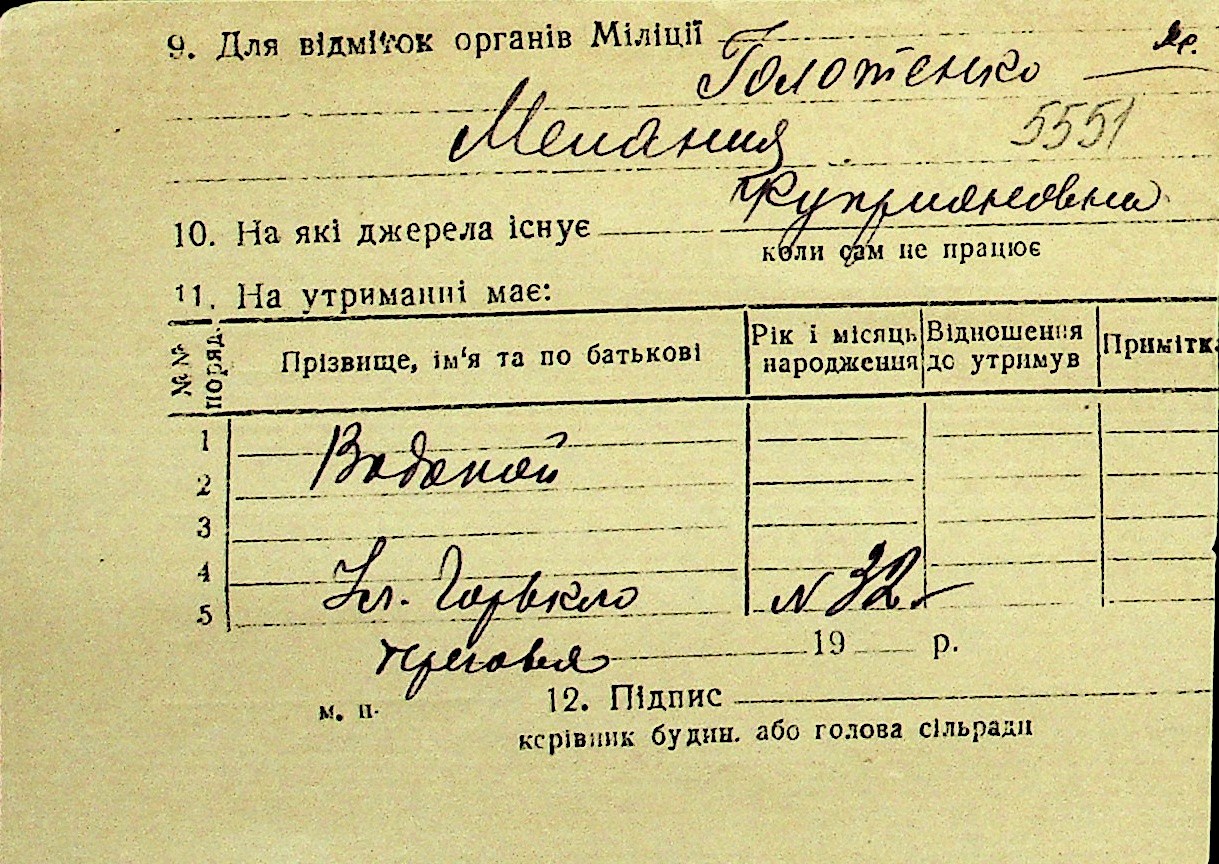 9. Для відміток органів Міліції
Голотенко
Мелания 5551
Куприяновна
10. На які джерела існує
коли сам не працює
11. На утриманні має:
№№ поряд. Прізвище, ім'я та по батькові Рік і місяць народження Відношення до утримув Примітка
1
Водяной
2
3
4
Ул. Горького N 32.
5
19 р.
м. п. 12. Підпис
керівник будин. або голова сільради